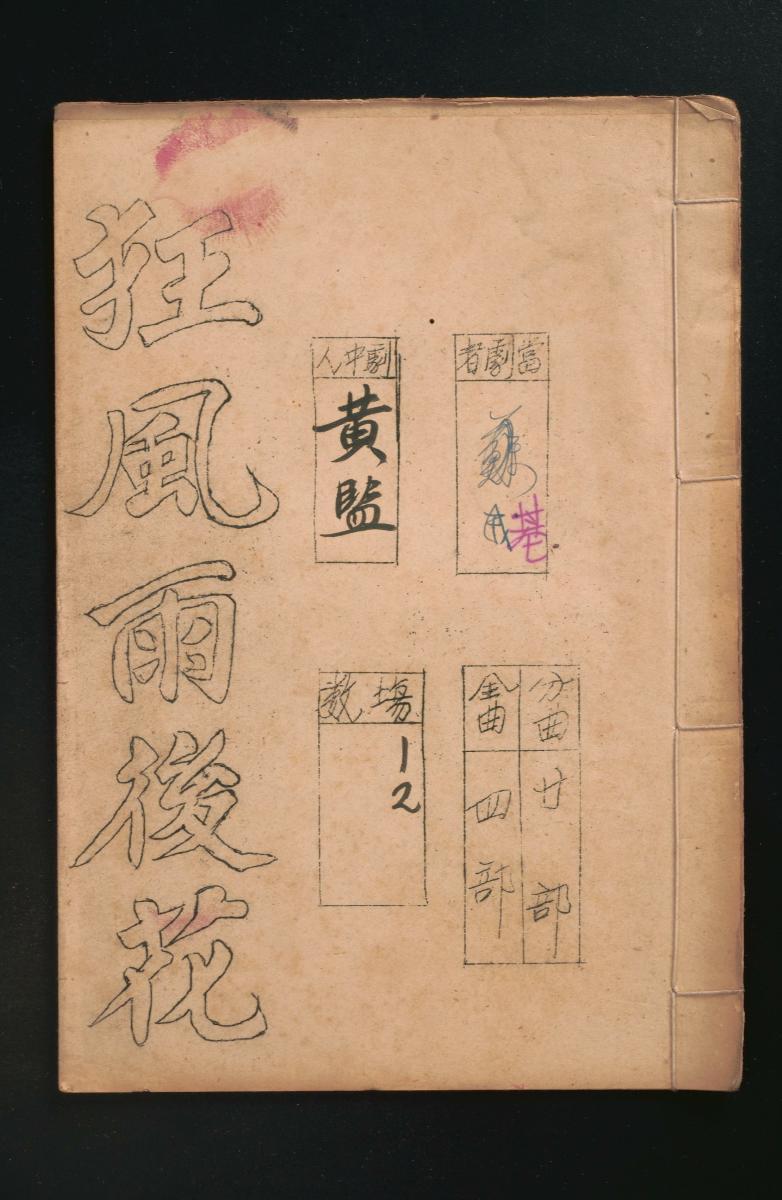 當劇者
劇中人
黄監
分曲
廿部
全曲
四部
場數
12
狂風雨後花